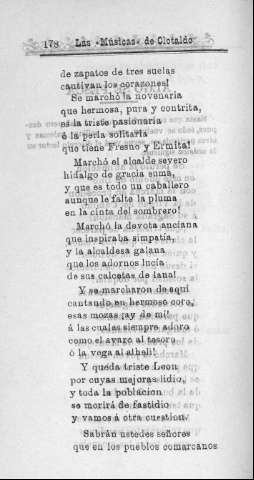 178 Las «Músicas» de Clotaldo
de zapatos de tres suelas
cautivan los corazones!
Se marchó la novenaria
que hermosa, pura y contrita,
es la triste pasionaria
ó la perla solitaria
que tiene Fresno y Ermita!
Marchó el alcalde severo
hidalgo de gracia suma,
y que es todo un caballero
aunque le falte la pluma
en la cinta del sombrero!
Marchó la devota anciana
que inspiraba simpatía,
y la alcaldesa galana
que los adornos lucía
de sus calcetas de lana!
Y se marcharon de aquí
cantando en hermoso coro,
esas mozas ¡ay de mí!
á las cuales siempre adoro
como el avaro al tesoro
ó la vega al alhelí!
Y queda triste Leon
por cuyas mejoras lidio,
y toda la poblacion
se morirá de fastidio
y vamos á otra cuestion.
Sabrán ustedes señores
que en los pueblos comarcanos